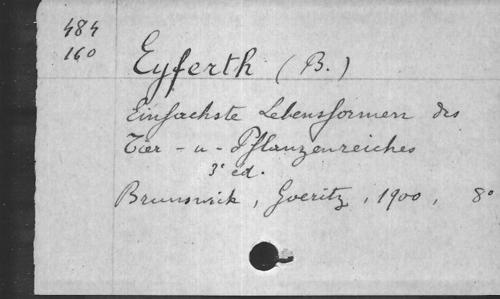 484
160
Eyferth (B.)
Einfachste Lebensformen des
Tier - u - Pflanzenreiches
3e ed.
Brunswik, Goeritz, 1900, 8o